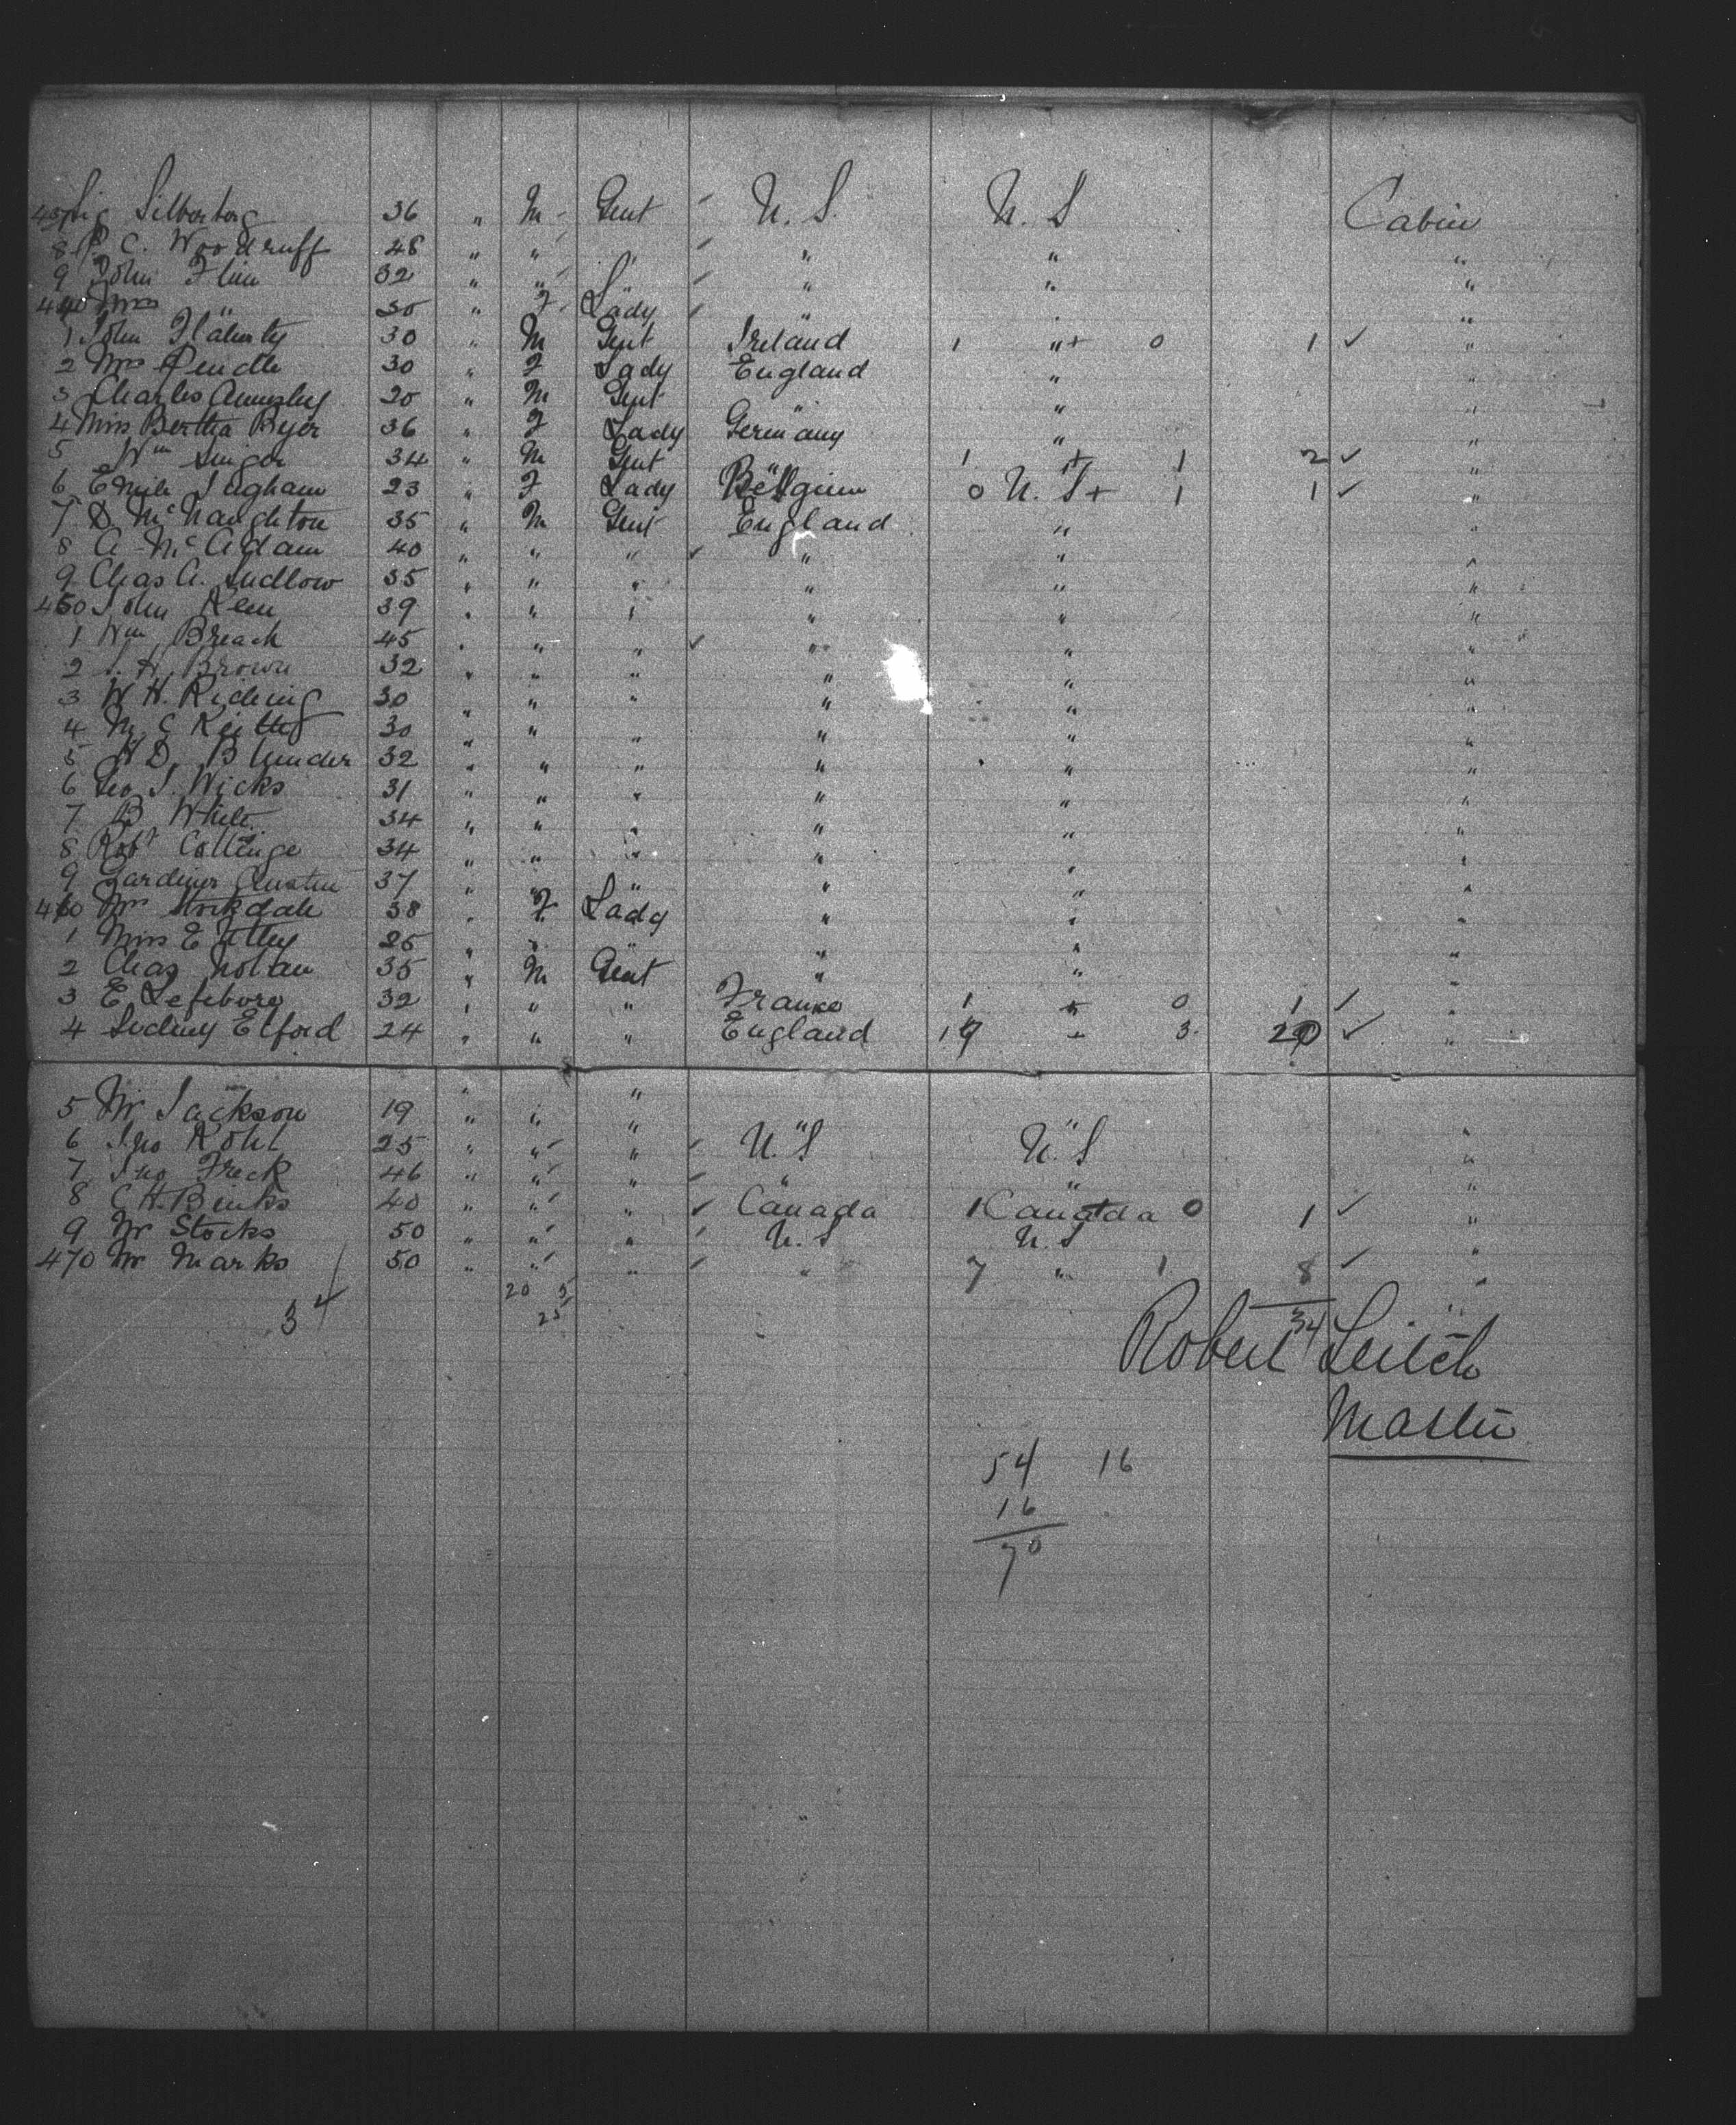 437 Sig Silberberg 36 " M Gent U.S. U.S Cabin
8 P. C. Woodruff 48 " " " " " "
9 John Flinn 32 " " " " " "
440 Mrs " 30 " F Lady " " "
1 John Flaherty 30 " M Gent Ireland 1 " + 0 1 ✓ "
2 Mrs Pendle 30 " F Lady England " "
3 Charles Annesley 20 " M Gent " " "
4 Miss Bertha Byer 36 " F Lady Germany " "
5 Wm Singer 34 " M Gent " 1 + 1 2 ✓ "
6 Emile Ingham 23 " F Lady Belgium 0 U.S + 1 1 ✓ "
7 D McNaughton 35 " M Gent England " "
8 A McAdam 40 " " " " " "
9 Chas A. Ludlow 35 " " " " " "
450 John 39 " " " " " "
1 Wm Breach 45 " " " " " "
2 H. Brown 32 " " " " " "
3 W H. Rideing 30 " " " " " "
4 M. C 30 " " " " " "
5 H D. Blunder 32 " " " " " "
6 Geo J. Wicks 31 " " " " " "
7 B White 34 " " " " " "
8 Robt Collinge 34 " " " " " "
9 Gardiner Austin 37 " " " " " "
460 Mrs Stockdale 38 " F Lady " " "
1 Miss E Utley 25 " " " " " "
2 Chas Nolan 35 " M Gent " " "
3 E Lefebvre 32 " " " France 1 + 0 1 ✓ "
4 Sydney Elford 24 " " " England 17 + 3 20 ✓ "
5 Mr Jackson 19 " " " " " "
6 Jno Kohl 25 " " " U.S U.S "
7 Jno Freck 46 " " " " " "
8 C H. Binks 40 " " " Canada 1 Canada 0 1 ✓ "
9 Mr Stocks 50 " " " U.S U.S "
470 Mr Marks 50 " " " " 7 " 1 8 ✓ "
34 20 5 34
25
Robert Leitch
Master
54 16
16
70